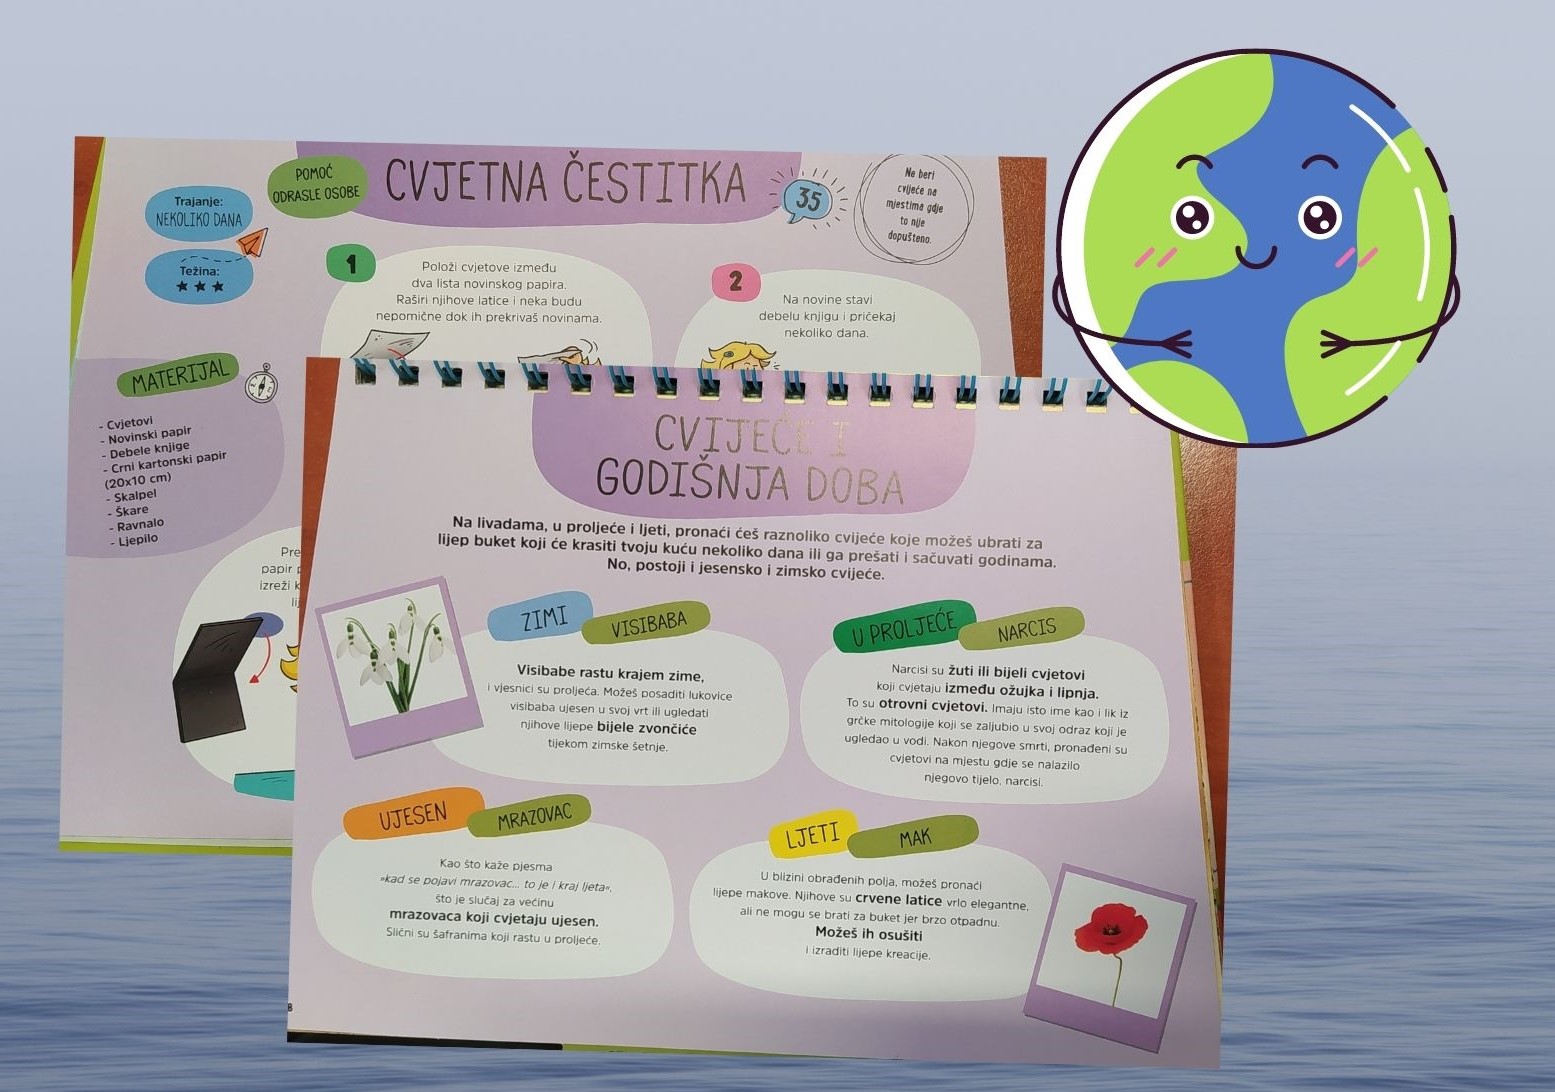 POMOĆ
ODRASLE OSOBE
CVJETNA ČESTITKA
35
Ne beri
cvijeće na
mjestima gdje
to nije
dopušteno.
Trajanje:
NEKOLIKO DANA
Težina:
1
Položi cvjetove između
dva lista novinskog papira.
Raširi njihove latice i neka budu
nepomične dok ih prekrivaš novinama.
2
Na novine stavi
debelu knjigu i pričekaj
nekoliko dana.
MATERIJAL
- Cvjetovi
- Novinski papir
- Debele knjige
- Crni kartonski papir
(20x10 cm)
- Skalpel
- Škare
- Ravnalo
- Ljepilo
Pre
papir
izreži k
CVIJEĆE I
GODIŠNJA DOBA
Na livadama, u proljeće i ljeti, pronaći ćeš raznoliko cvijeće koje možeš ubrati za
lijep buket koji će krasiti tvoju kuću nekoliko dana ili ga prešati i sačuvati godinama.
No, postoji i jesensko i zimsko cvijeće.
ZIMI VISIBABA
Visibabe rastu krajem zime,
i vjesnici su proljeća. Možeš posaditi lukovice
visibaba ujesen u svoj vrt ili ugledati
njihove lijepe bijele zvončiće
tijekom zimske šetnje.
U PROLJEĆE NARCIS
Narcisi su žuti ili bijeli cvjetovi
koji cvjetaju između ožujka i lipnja.
To su otrovni cvjetovi. Imaju isto ime kao i lik iz
grčke mitologije koji se zaljubio u svoj odraz koji je
ugledao u vodi. Nakon njegove smrti, pronađeni su
cvjetovi na mjestu gdje se nalazilo
njegovo tijelo, narcisi.
UJESEN MRAZOVAC
Kao što kaže pjesma
»kad se pojavi mrazovac... to je i kraj ljeta«,
što je slučaj za većinu
mrazovaca koji cvjetaju ujesen.
Slični su šafranima koji rastu u proljeće.
LJETI MAK
U blizini obrađenih polja, možeš pronaći
lijepe makove. Njihove su crvene latice vrlo elegantne,
ali ne mogu se brati za buket jer brzo otpadnu.
Možeš ih osušiti
i izraditi lijepe kreacije.
8